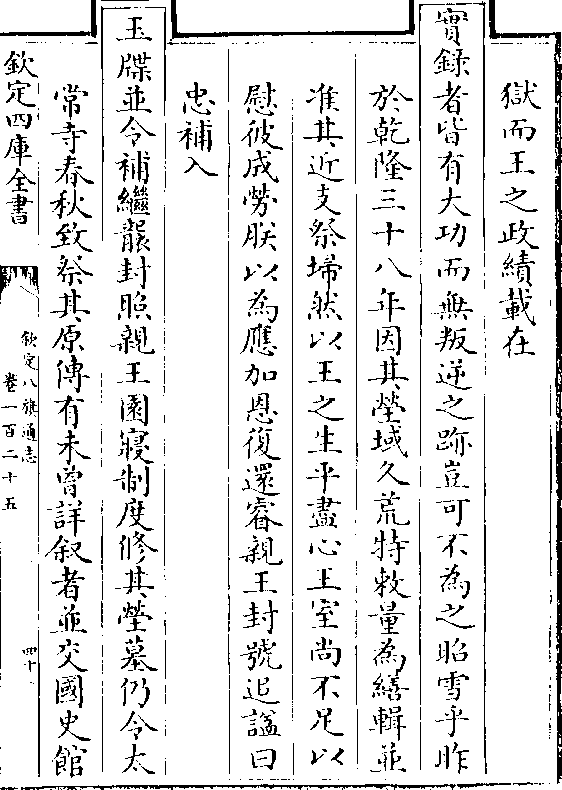 獄而王之政績載在
實錄者皆有大功而無叛逆之跡豈可不為之昭雪乎昨
於乾隆三十八年因其塋域久荒特敕量為繕輯並
准其近支祭埽然以王之生平盡心王室尚不足以
慰彼成勞朕以為應加恩復還睿親王封號追諡曰
忠補入
玉牒並令補繼襲封照親王園寢制度修其塋墓仍令太
常寺春秋致祭其原傳有未曾詳叙者並交國史館
欽定四庫全書
欽定八旗通志
卷一百二十五
四十